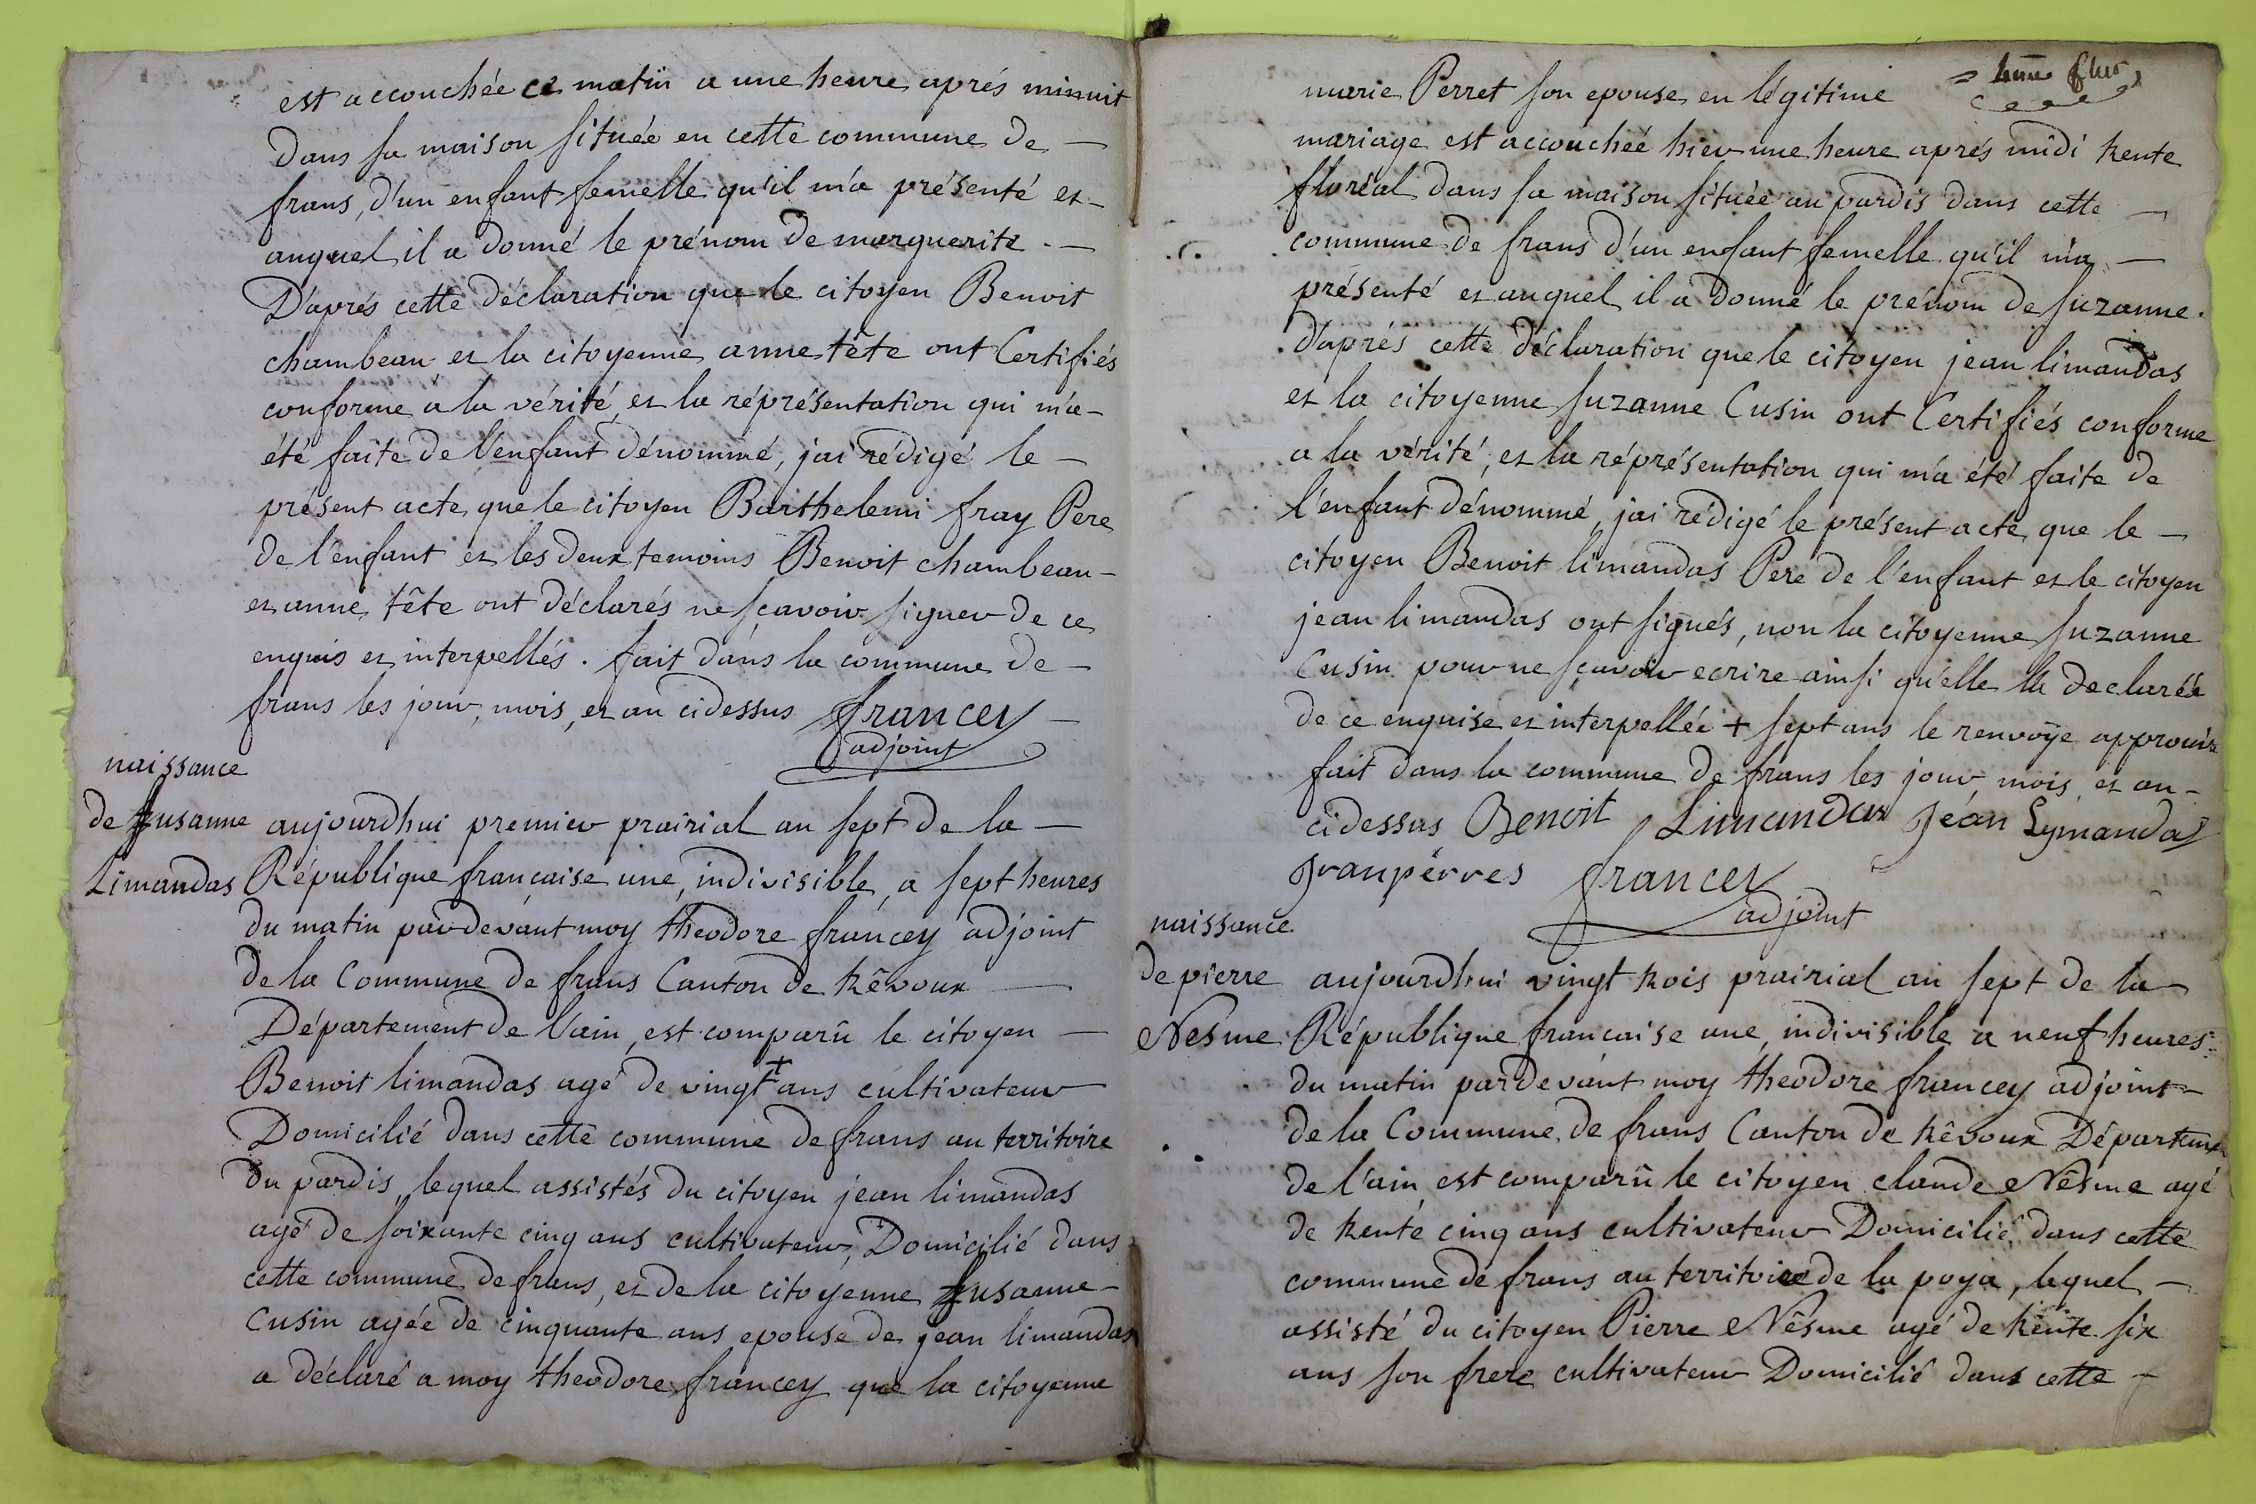 est accouchée ce matin a une heure aprés minuit
dans sa maison située en cette commune de —
frans, d'un enfant femelle qu'il m'a présenté et —
auquel il a donné le prénom de marguerite. —
D'aprés cette déclaration que le citoyen Benoit
chambeau et la citoyenne anne tête ont Certifiés
conforme a la vérité et la réprésentation qui m'a —
été faite de l'enfant dénommé, jai rédigé le —
présent acte que le citoyen Barthelemi fray Pere
de l'enfant et les deux temoins Benoit chambeau —
et anne tête ont déclarés ne sçavoir signer de ce
enquis et interpellés. fait dans la commune de —
frans les jour, mois, et an cidessus francey —
adjoint
naissance
de Susanne
Limandas
aujourdhui premier prairial an sept de la —
République française une, indivisible, a sept heures
du matin pardevant moy théodore francey adjoint
de la Commune de frans Canton de trêvoux —
Département de l'ain, est comparû le citoyen —
Benoit limandas agé de vingt + ans cultivateur
Domicilié dans cette commune de frans au territoire
du pardis, lequel assistés du citoyen jean limandas
agé de soixante cinq ans cultivateur, Domicilié dans
cette commune de frans, et de la citoyenne Susanne —
Cusin agée de cinquante ans epouse de jean limandas
a déclaré a moy théodore francey que la citoyenne
marie Perret son epouse en légitime
mariage est accouchéé hier une heure aprés midi trente
floréal dans sa maison située au pardis dans cette —
commune de frans d'un enfant femelle qu'il m'a —
présenté et auquel il a donné le prénom de suzanne.
d'aprés cette déclaration que le citoyen jean limandas
et la citoyenne suzanne Cusin ont Certifiés conforme
a la vérité, et la réprésentation qui m'a été faite de
l'enfant dénommé, jai rédigé le présent acte que le —
citoyen Benoit limandas Pere de l'enfant et le citoyen
jean limandas ont signés, non la citoyenne suzanne
Cusin pour ne sçavoir ecrire ainsi qu'elle la declaréé
de ce enquise et interpellée + sept ans le renvoye approuvé
fait dans la commune de frans les jour, mois, et an —
cidessus Benoit Limandas Jéan Lymandas
francey
adjoint
naissance
de pierre
Nesme
aujourdhui vingt trois prairial an sept de la
République française une, indivisible a neuf heures
du matin pardevant moy théodore francey adjoint —
de la Commune de frans Canton de trêvoux Département
de l'ain est comparû le citoyen claude Nêsme agé
de trente cinq ans cultivateur Domicilié dans cette
commune de frans au territoire de la poya, lequel —
assisté du citoyen Pierre Nêsme agé de trente six
ans son frere cultivateur Domicilié dans cette —